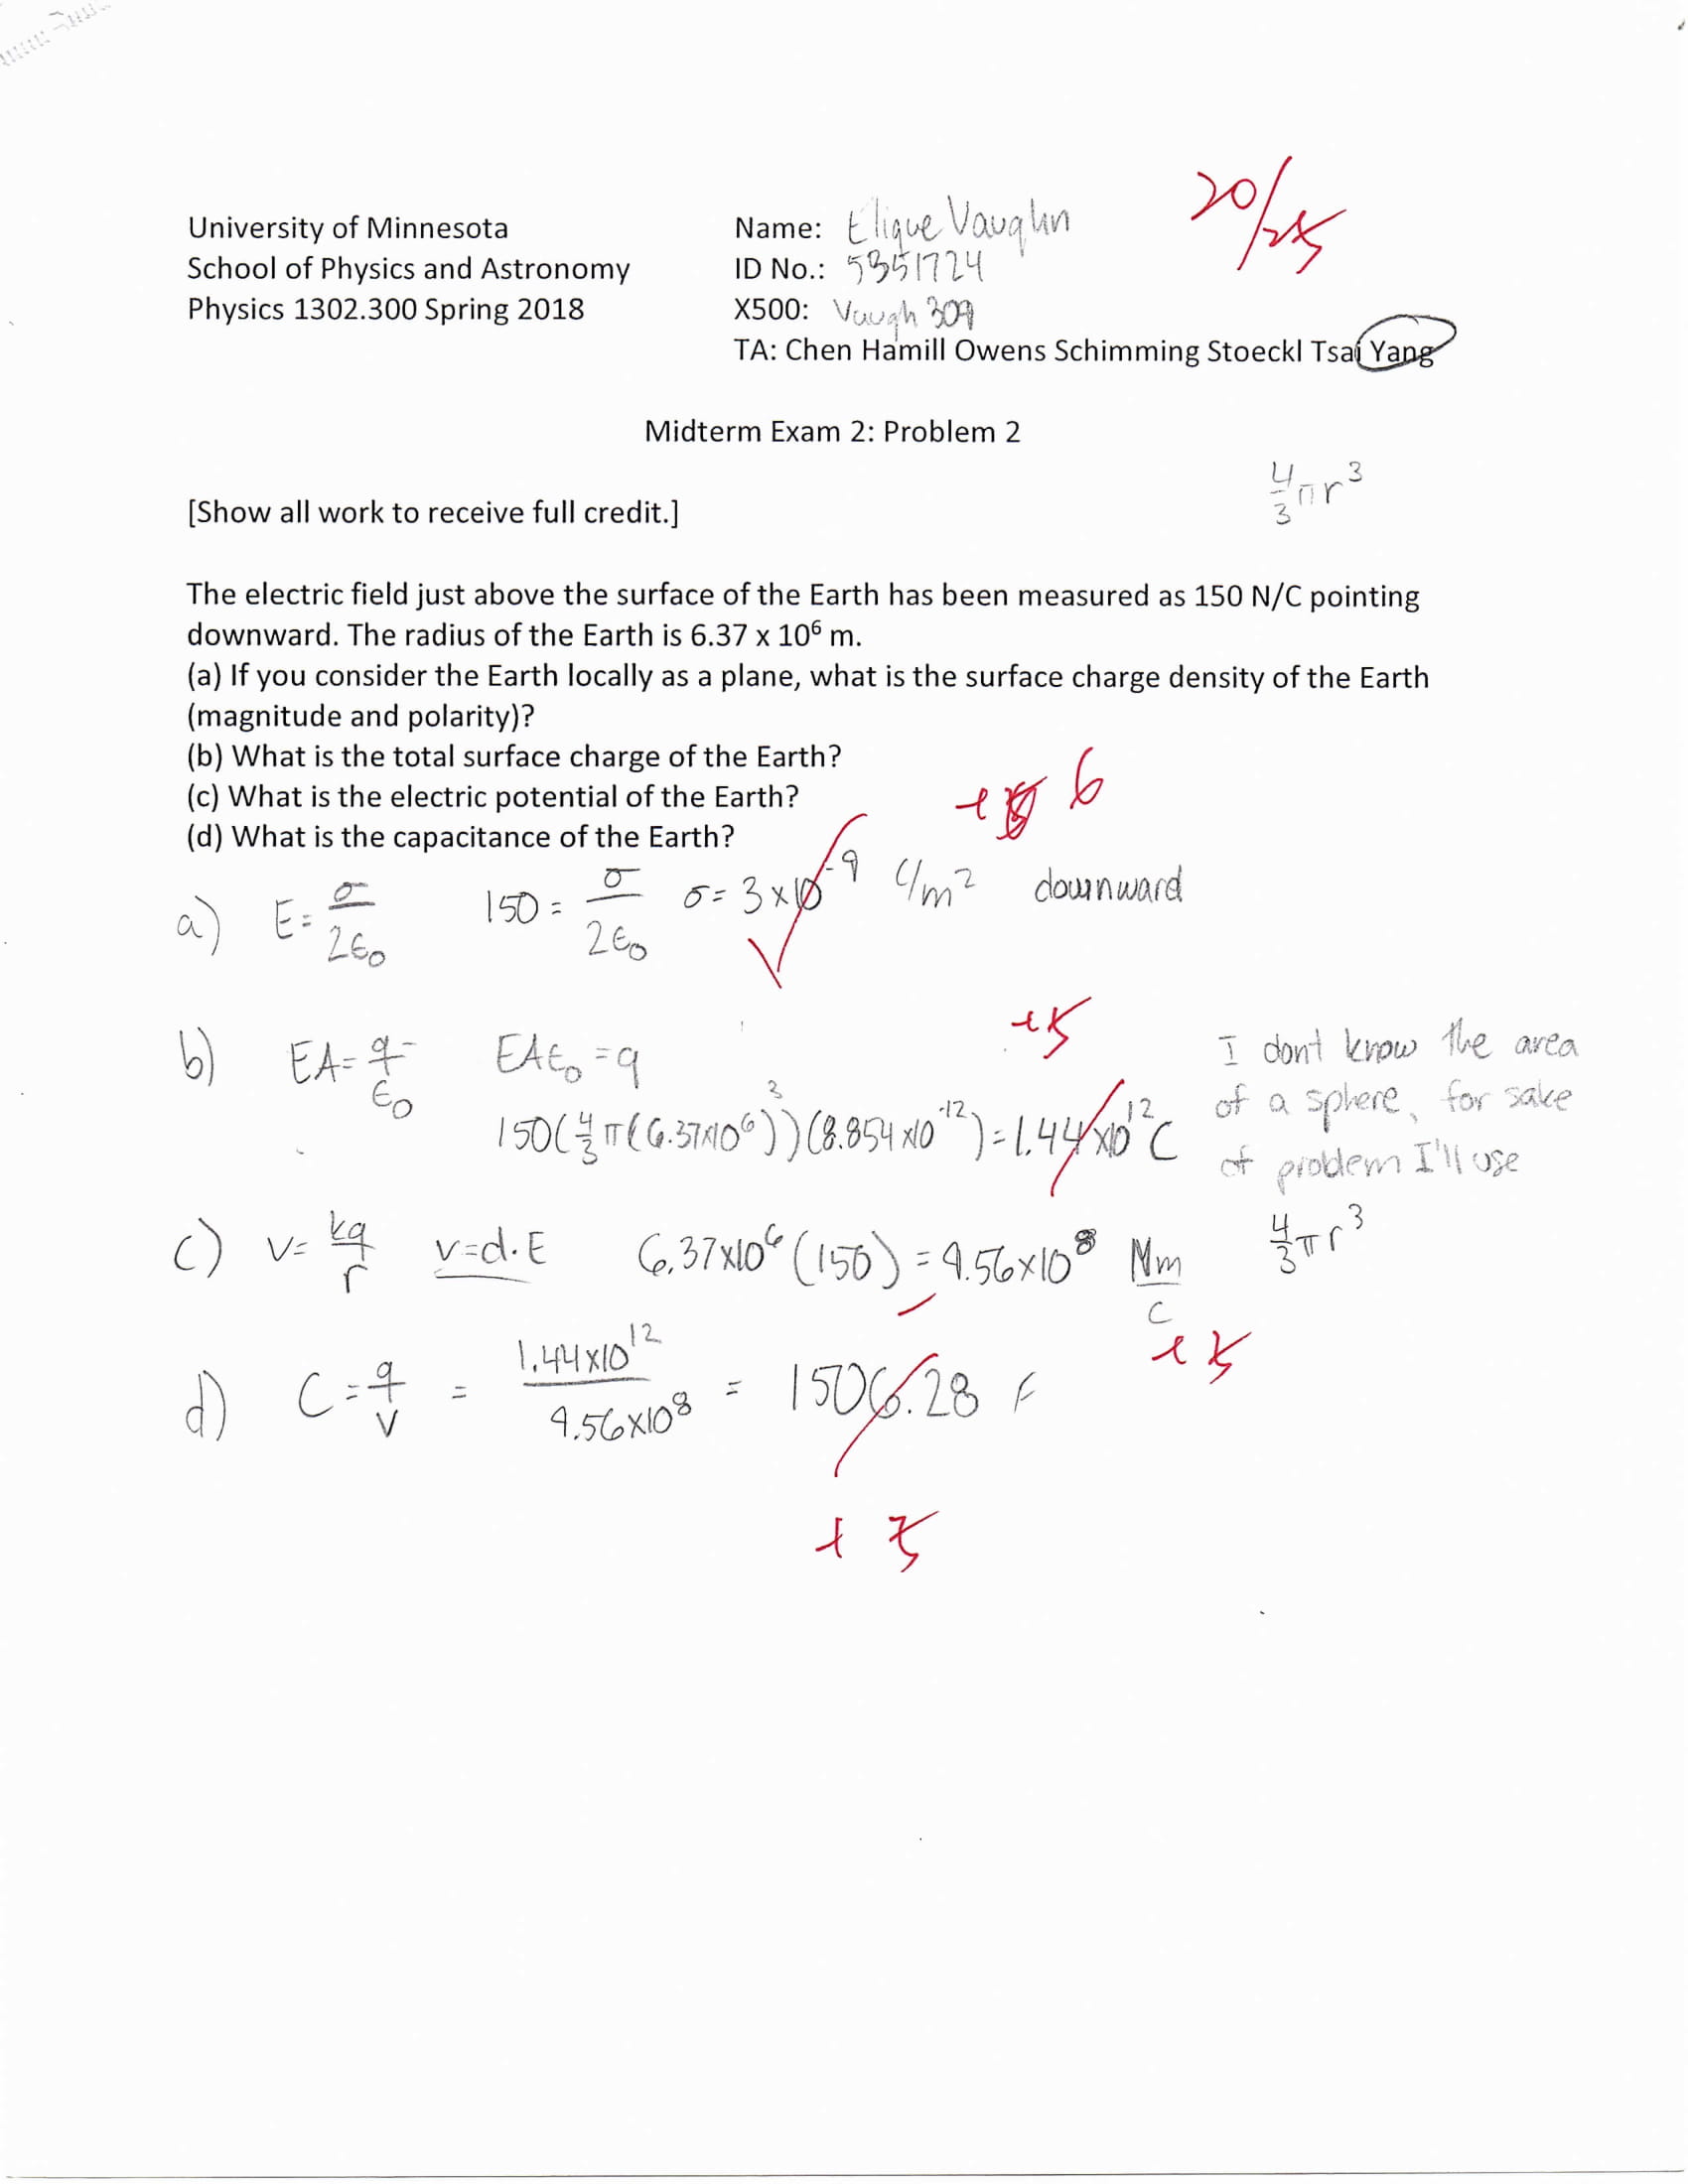 University of Minnesota
School of Physics and Astronomy
Physics 1302.300 Spring 2018
Name: Elique Vaughn
ID No.: 5351724
X500: Vaugh309
TA: Chen Hamill Owens Schimming Stoeckl Tsai Yang
20/25
Midterm Exam 2: Problem 2
4/3 πr³
[Show all work to receive full credit.]
The electric field just above the surface of the Earth has been measured as 150 N/C pointing
downward. The radius of the Earth is 6.37 x 10⁶ m.
(a) If you consider the Earth locally as a plane, what is the surface charge density of the Earth
(magnitude and polarity)?
(b) What is the total surface charge of the Earth?
(c) What is the electric potential of the Earth?
(d) What is the capacitance of the Earth?
+ 6
a) E = σ/2ϵ₀ 150 = σ/2ϵ₀ σ = 3×10⁻⁹ C/m² downward
+5
b) EA = q/ϵ₀ EAϵ₀ = q
150(4/3 π(6.37×10⁶)³)(8.854×10⁻¹²) = 1.44×10¹² C
I dont know the area
of a sphere, for sake
of problem I'll use
4/3 πr³
c) V = kq/r V=d·E 6.37×10⁶(150) = 9.56×10⁸ Nm/C
+5
d) C = q/V = 1.44×10¹²/9.56×10⁸ = 1506.28 F
+5